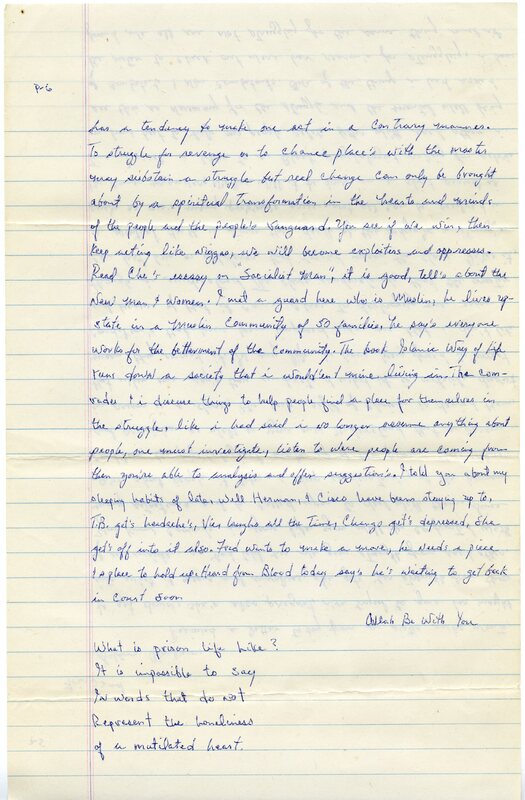 P-6
has a tendency to make one act in a contrary manner.
To struggle for revenge or to chance place's with the master
may substain a struggle but real change can only be brought
about by a spiritual transformation in the hearts and minds
of the people and the people's vanguard. You see if we win, then
keep acting like niggas, we will become exploiters and oppresses.
Read Che's essay on "Socialist Man", it is good, tell's about the
New Man & Women. I met a guard here who is Muslim, he lives up-
state in a Muslim Community of 50 families, he say's everyone
works for the betterment of the community. The book Islamic Way of Life
runs down a society that i would'en't mine living in. The com-
rades & i discuss things to help people find a place for themselves in
the struggle, like i had said i no longer assume anything about
people, one must investigate, listen to were people are coming from
then you're able to analysis and offer suggestion's. I told you about my
sleeping habits of late, Well Herman, & Cisco have been staying up to,
T.B. get's headache's, Vic laughs all the time, Chango get's depressed, Sha
get's off into it also. Fred wants to make a move, he needs a piece
& a place to hold up. Heard from Blood today say's he's waiting to get back
in court soon
Allah Be With You
What is prison life like?
It is impossible to say
In words that do not
Represent the loneliness
of a mutilated heart.